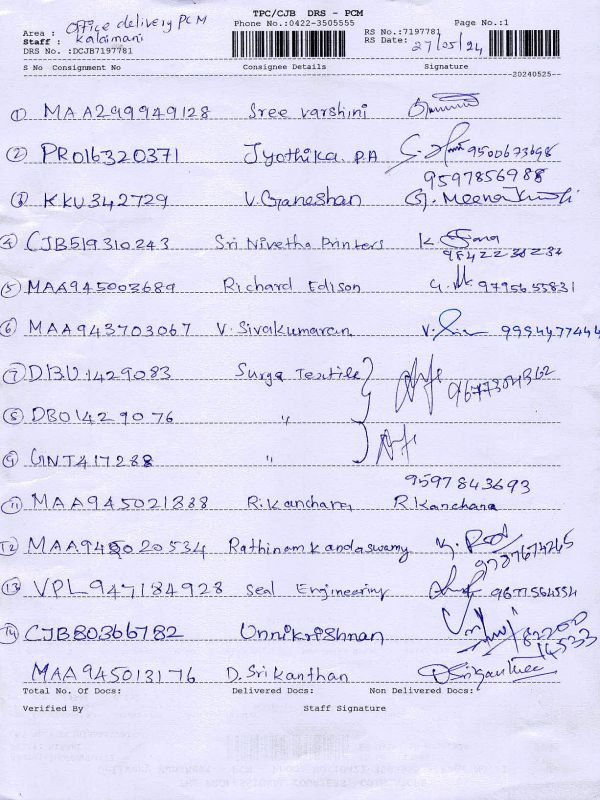 TPC/CJB DRS - PCM
Phone No.:0422-3505555
Page No.:1
Area : Office delivery PCM
Staff : Kalaimani
DRS No. :DCJB7197781
RS No.:7197781
RS Date: 27/05/24
S No Consignment No Consignee Details Signature
20240525
1 MAA299949128 Sree varshini
2 PRO16320371 Jyothika P.A 9500673698
9597856988
3 KKU342729 V.Ganeshan G. Meena
4 CJB519310243 Sri Nivetha Printers K
5 MAA945003689 Richard Edison 9795655831
6 MAA943703067 V. Sivakumaran V. 9994477444
7 DBU1429083 Surya Textile 9677304362
8 DBO1429076 "
9 GNT417288 "
9597843693
11 MAA945021888 R.Kanchana R Kanchana
12 MAA945020534 Rathinam Kandaswamy 9787674265
13 VPL947184928 Seal Engineering 9677564554
14 CJB80366782 Unnikrishnan
MAA945013176 D. Srikanthan
Total No. Of Docs: Delivered Docs: Non Delivered Docs:
Verified By Staff Signature